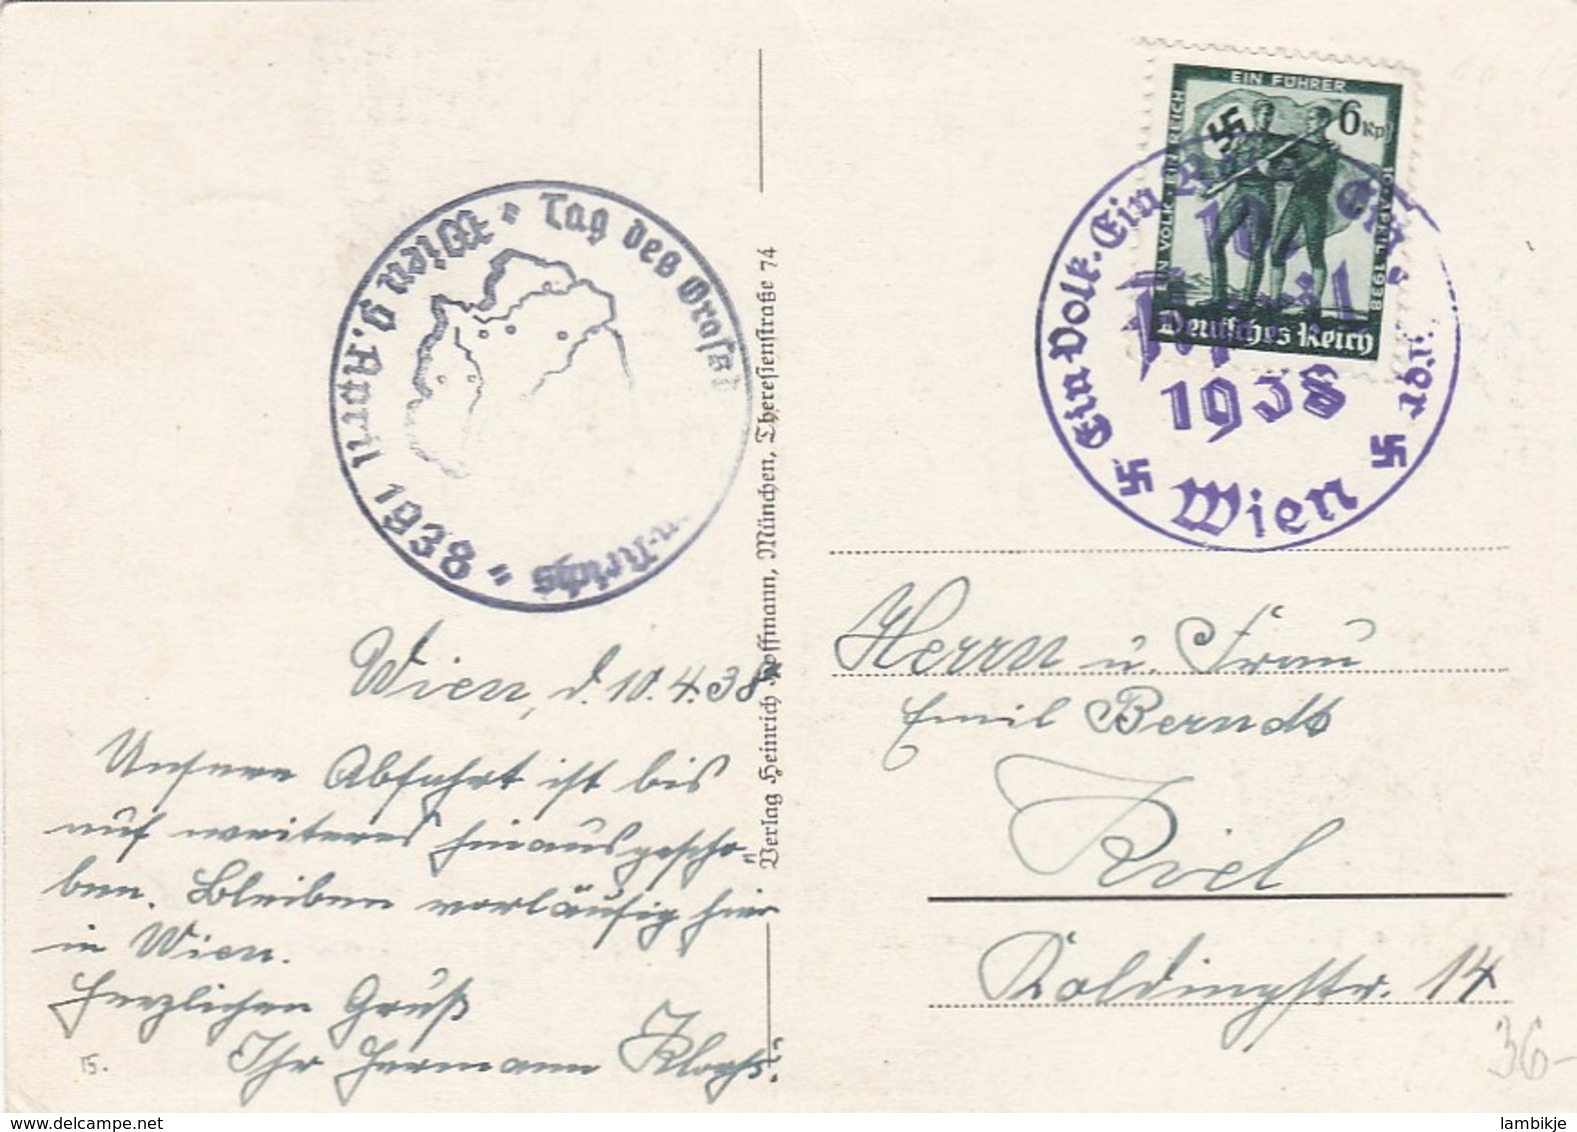 Wien · Tag des Großd
n-Reichs · 9. April 1938
Verlag Heinrich Hoffmann, München, Theresienstraße 74
EIN VOLK EIN REICH
EIN FÜHRER
10. APRIL 1938
6 Rpf
Deutsches Reich
Ein Volk. Ein Reich. Ein
10.
April
1938
Wien
Wien, d. 10.4.38
Unsere Abfahrt ist bis
auf weiteres hinausgescho-
ben. Bleiben vorläufig hier
in Wien.
Herzlichen Gruß
Ihr Hermann
15.
Herrn u. Frau
Emil Berndt
Kiel
Koldingstr. 14
36-
lambikje